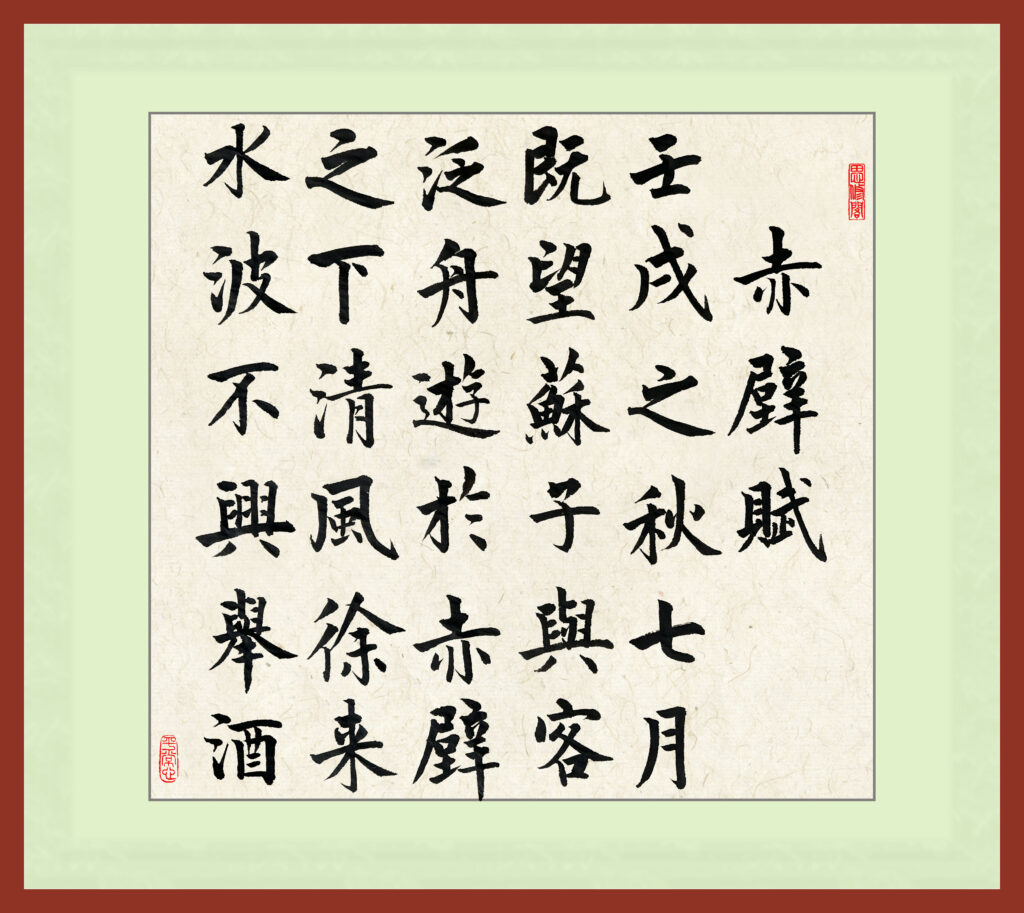 赤壁賦
壬戌之秋七月
既望蘇子與客
泛舟遊於赤壁
之下清風徐来
水波不興舉酒
思修閣
平常心